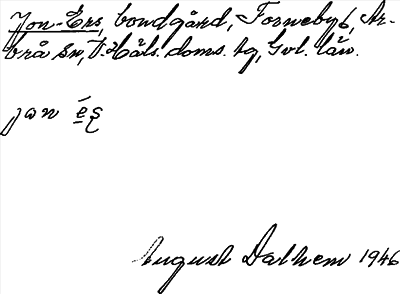 Jon-Ers, bondgård, Forneby 6, Ar-
brå sn, V. Häls. doms. tg, Gvl. län.
jan ę̄ʂ
August Dalhem 1946